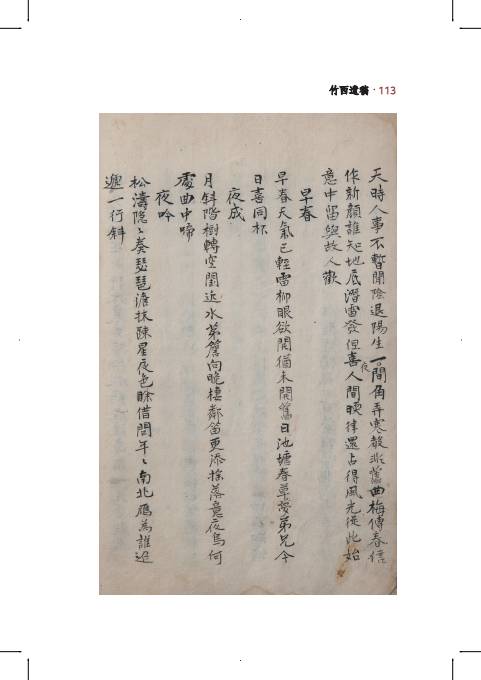 竹西遺稿 · 113
天時人事不暫閒陰退陽生一夜間角弄寒聲非舊曲梅傳春信
作新顔誰知地底潛雷發但喜人間暖律還占得風光從此始
意中留與故人歡
早春
早春天氣已輕雷柳眼欲開猶未開舊日池塘春草夢弟兄今
日喜同杯
夜成
月斜階樹轉空園近水茅簷向晚棲鄰笛更添搖落意夜烏何
處曲中啼
夜吟
松濤隱〻奏瑟琶澹抹疎星夜色賖借問年〻南北鴈為誰迢
遞一行斜